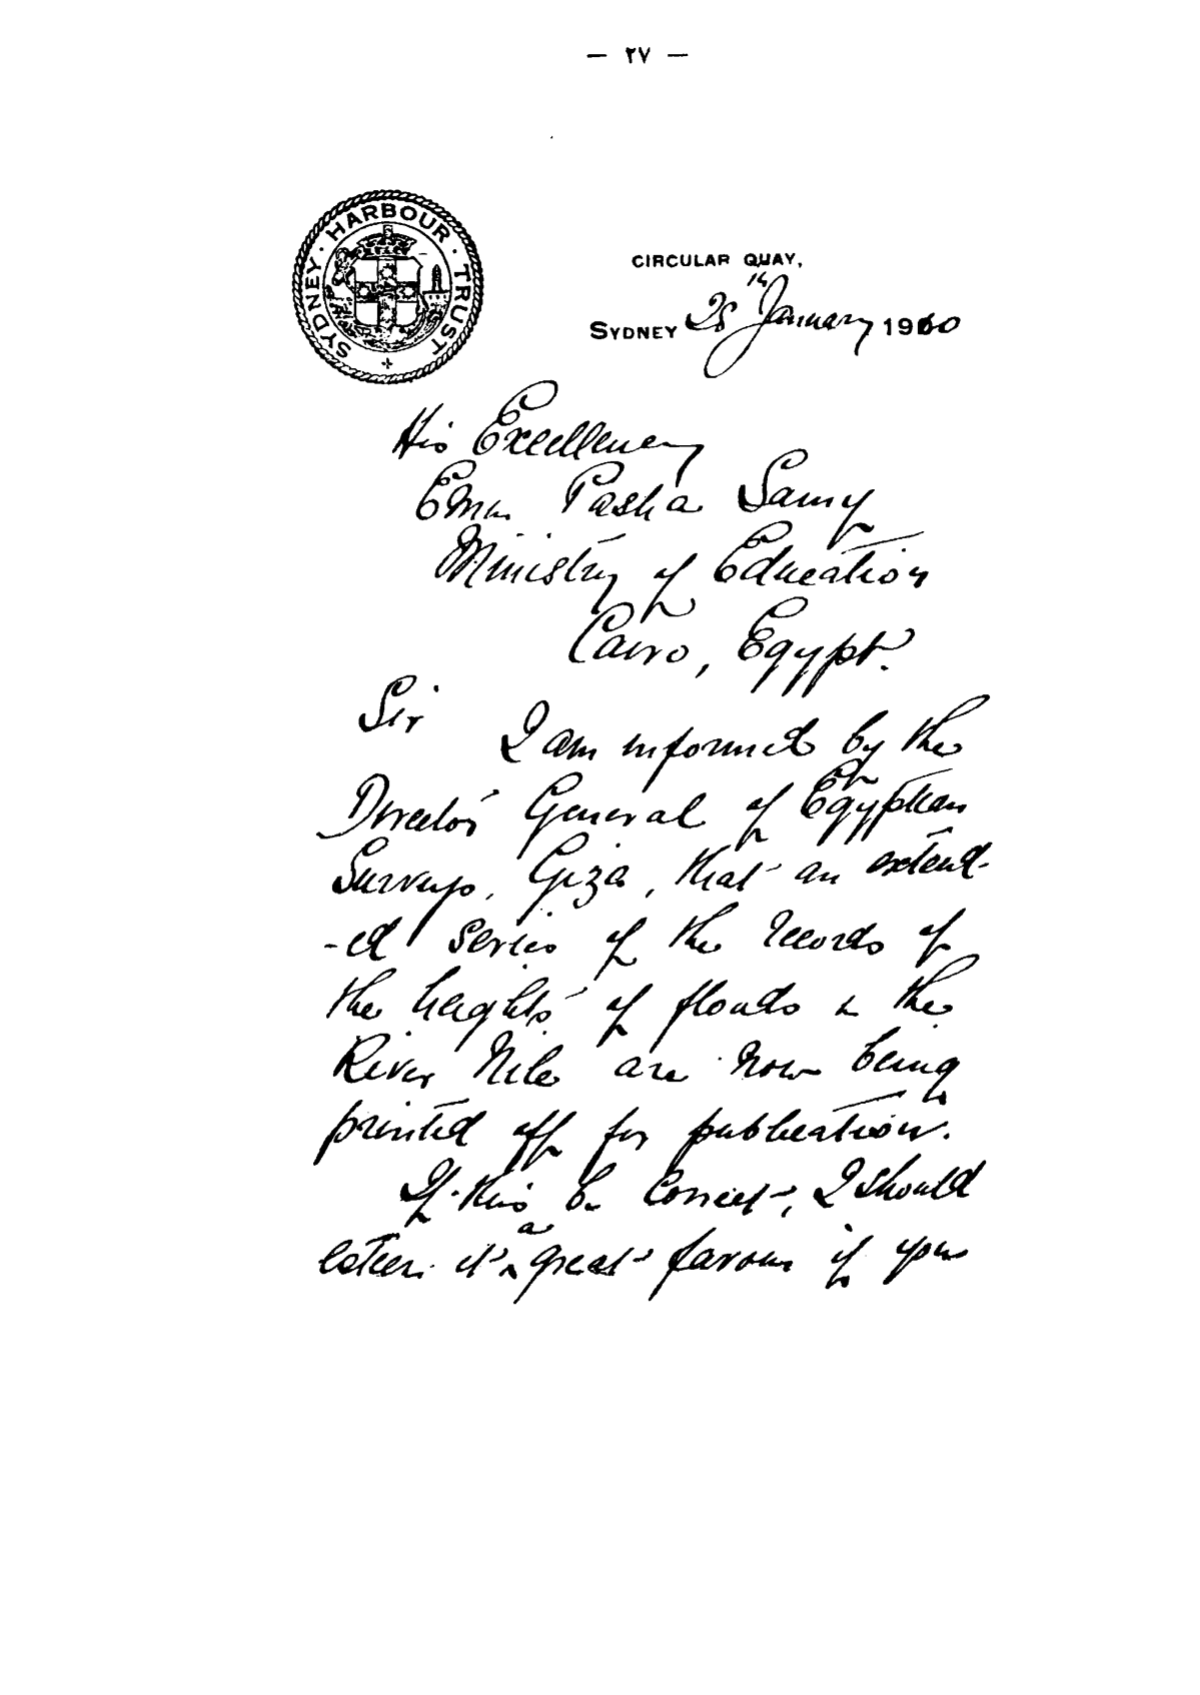 — ٢٧ —
SYDNEY · HARBOUR · TRUST
CIRCULAR QUAY,
SYDNEY 28th January 1910
His Excellency
Pasha Samy
Ministry of Education
Cairo, Egypt.
Sir
I am informed by the
Director General of Egyptian
Surveys, Giza, that an extend-
-ed series of the records of
the heights of floods in the
River Nile are now being
printed off for publication.
If this be correct, I should
esteem it a great favour if you